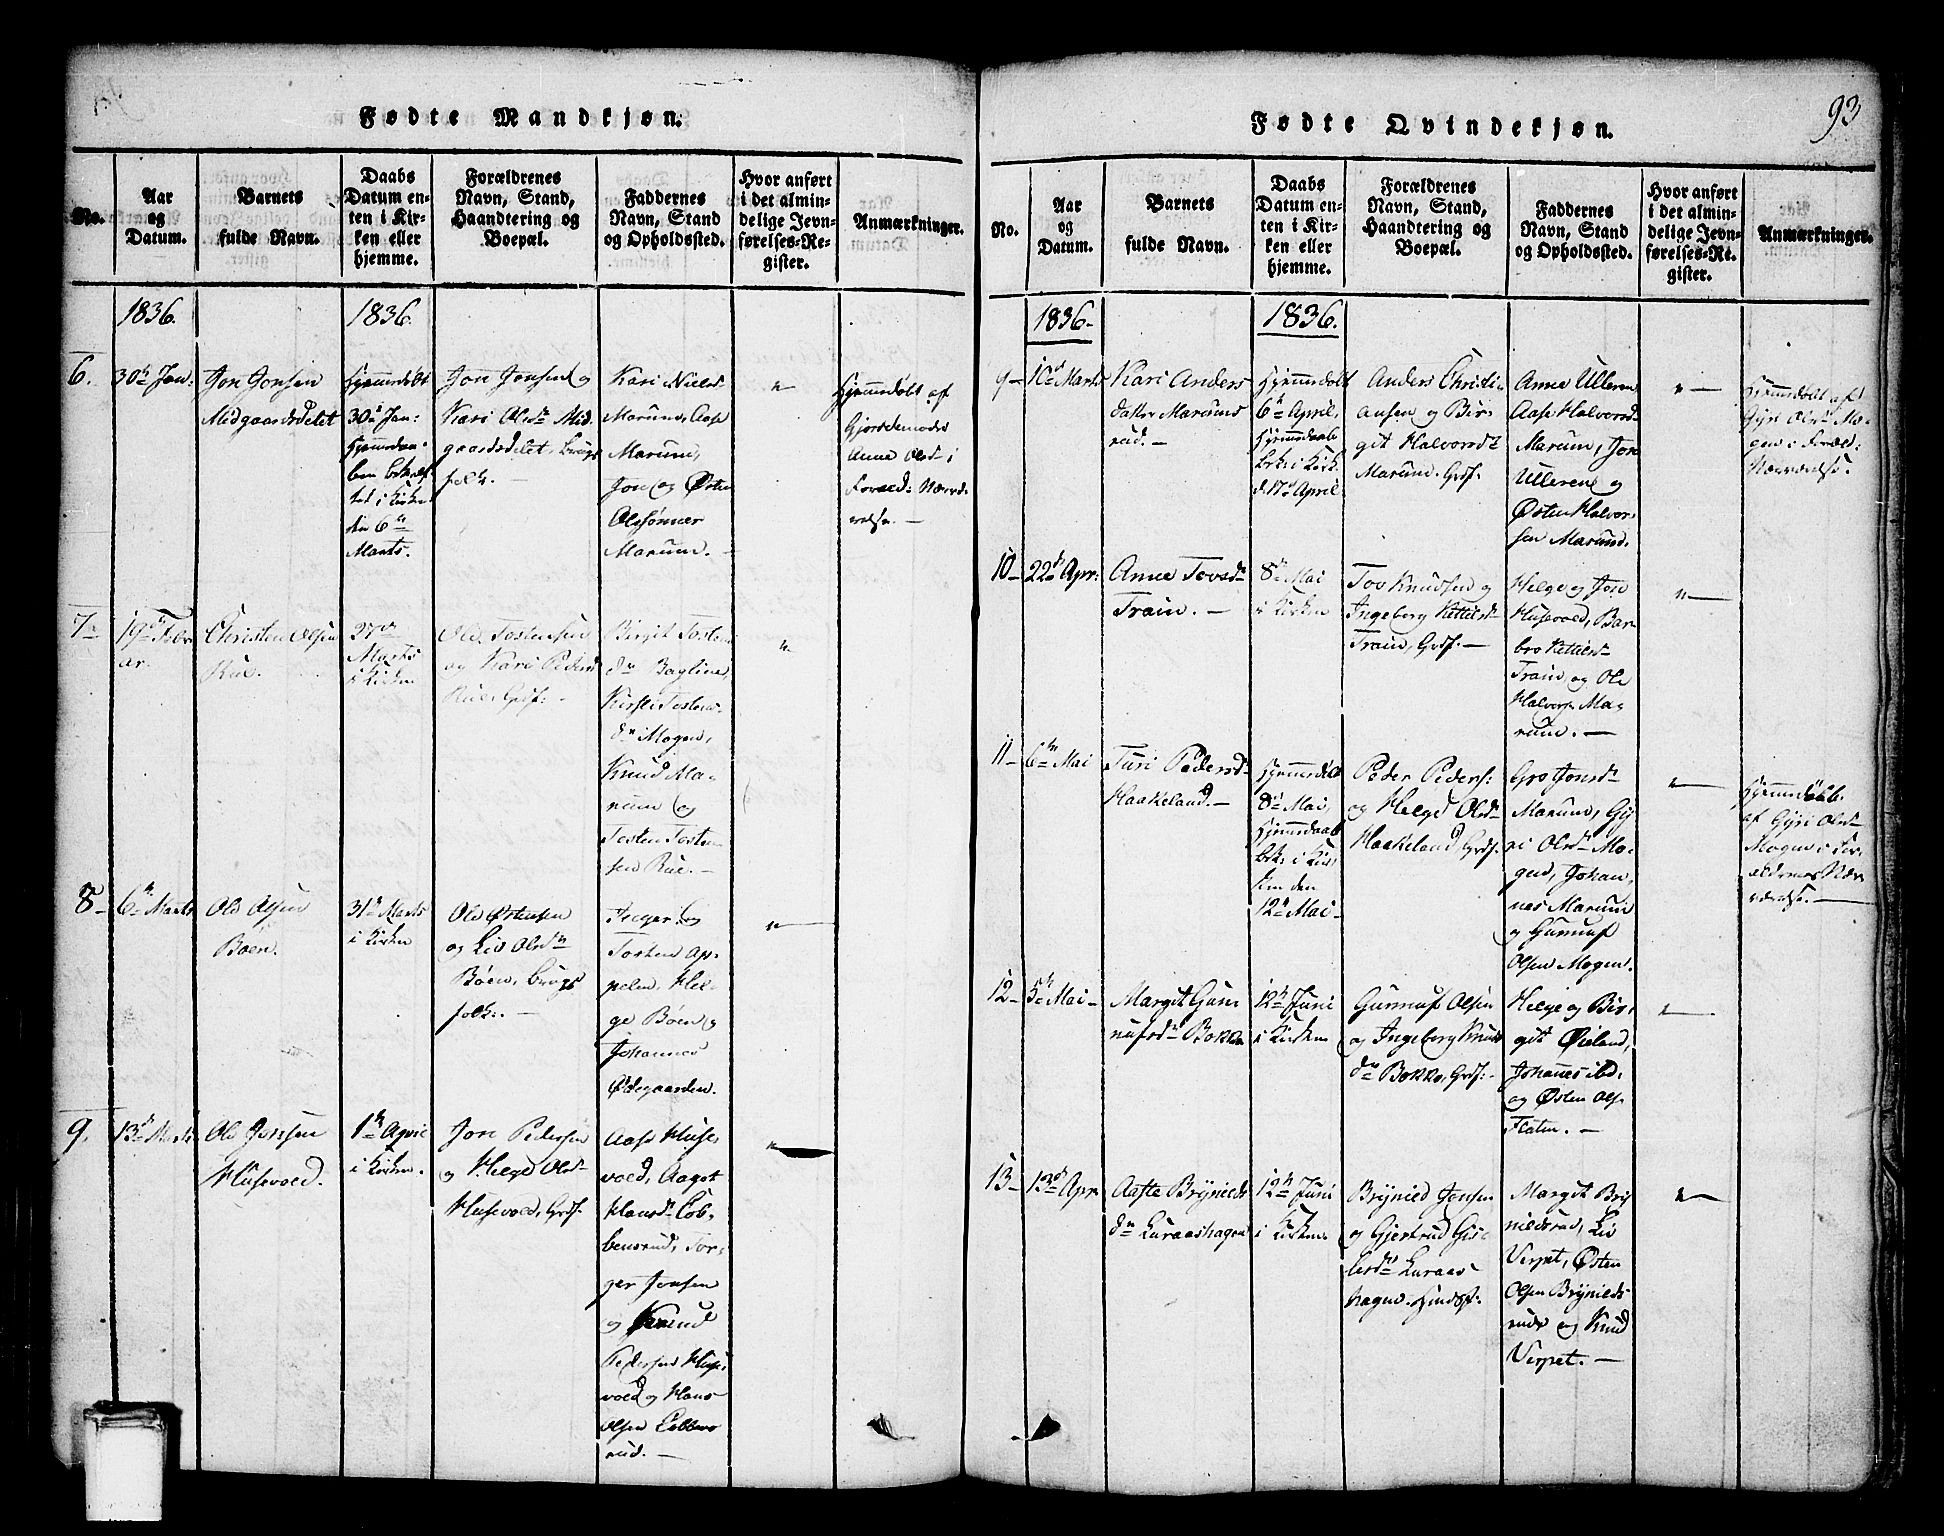 Fødte Mandkjøn.
No.
Aar
og
Datum.
Barnets
fulde Navn.
Daabs
Datum en-
ten i Kir-
ken eller
hjemme.
Forældrenes
Navn, Stand,
Haandtering og
Boepæl.
Faddernes
Navn, Stand
og Opholdssted.
Hvor anført
i det almin-
delige Jevn-
førelses-Re-
gister.
Anmærkninger.
1836.
1836.
6.
30te Jan:
Jon Jonsen
Midgaardsdelet
Hjemmedøbt
30te Jan:
Hjemmedaa-
ben bekræf-
tet i Kirken
den 6te
Marts.
Jon Jonsen og
Kari Olsdr Mid-
gaardsdelet, brugs
folk. —
Kari Niels
Marum, Aase
Marum,
Jon og Østen
Olssønner
Marum. —
"—
Hjemmedøbt af
Gjordemoder
Anna Olsdr i
Foræld: Nærvæ-
relse. —
7
19de Febr
ar.
Christen Olsen
Rue.
27de
Marts
i Kirken
Ole Tostensen
og Kari Peders
Rue, Grdf: —
Birgit Tosten
dr Bagline,
Kirsti Tostens-
dr Mogen,
Knud Ma-
rum og
Tosten Tosten-
sen Rue. —
"—
8
6te Marts
Ole Olsen
Boen.
31te Marts
i Kirken
Ole Østensen
og Liv Olsdr
Bøen, brugs
folk. —
Ingeri og
Tosten Ap-
pelen, Hel-
ge Bøen og
Johannes
Ødegaarden.
"—
9.
13de Marts
Ole Jonsen
Husevold.
1te April
i Kirken.
Jon Pedersen
og Helge Olsdr
Husevold, Grdf.
Aase Huse-
vold, Aagot
Hansdr Cob-
bensrud, Tor-
ger Jonsen
og Knud
Pedersen Huse-
vold og Hans
Olsen Cobbens
rud. —
"—
Fødte Qvindekjøn.
93
No.
Aar
og
Datum.
Barnets
fulde Navn.
Daabs
Datum en-
ten i Kir-
ken eller
hjemme.
Forældrenes
Navn, Stand,
Haandtering og
Boepæl.
Faddernes
Navn, Stand
og Opholdssted.
Hvor anført
i det almin-
delige Jevn-
førelses-Re-
gister.
Anmærkninger.
1836.
1836.
9—
10de Marts
Kari Anders
datter Marums
rud. —
Hjemmedøbt
6te April,
Hjemmedaab
bek. i Kirk.
d. 17de April
Anders Christi-
ansen og Bir-
git Halvorsdr
Marum. Grdf.
Anne Ulleren
Aase Halvorsdr
Marum, Jon
Ulleren og
Østen Halvor-
sen Marum.
"—
Hjemmedøbt af
Gyri Olsdr Mo-
gen i Foræld:
Nærværelse.
10—
22de Apr:
Anne Tovsdr
Train. —
8de Mai
i Kirken
Tov Knudsen og
Ingeborg Kittilsdr
Train, Grdf. —
Helge og Jon
Husevold, Bar-
bro Kittilsdr
Train, og Ole
Halvors. Ma-
rum. —
"—
11—
6te Mai
Turi Pedersdr
Haakeland. —
Hjemmedøbt
8de Mai,
Hjemmedaab
bek: i Kir-
ken den
12te Mai—
Peder Peders:
og Helge Olsdr
Haakeland, Grdf.
Gro Jonsdr
Marum, Gy-
ri Olsdr Mo-
gen, Johan-
nes Marum
og Gunnuf
Olsen Mogen.
"—
Hjemmedøbt
af Gyri Olsdr
Mogen i For-
ældrenes Nær
værelse. —
12—
5te Mai—
Margit Gun
nufsdr Bokko
12te Juni
i Kirken
Gunnuf Olsen
og Ingeborg Knuds
dr Bokko, Grdf: —
Helge og Bir-
git Øieland,
Johannes ibd.
og Østen Ols.
Flaten. —
"—
13—
13de Apr.
Aaste Brynilds
dr Luraashagen
12te Juni
i Kirken.
Brynild Jonsen
og Gjertrud Gis-
lesdr Luraas-
hagen. Huusf:
Margit Bry
nildsrud, Liv
Verpet, Østen
Olsen Brynilds
rud og Knud
Verpet. —
"—